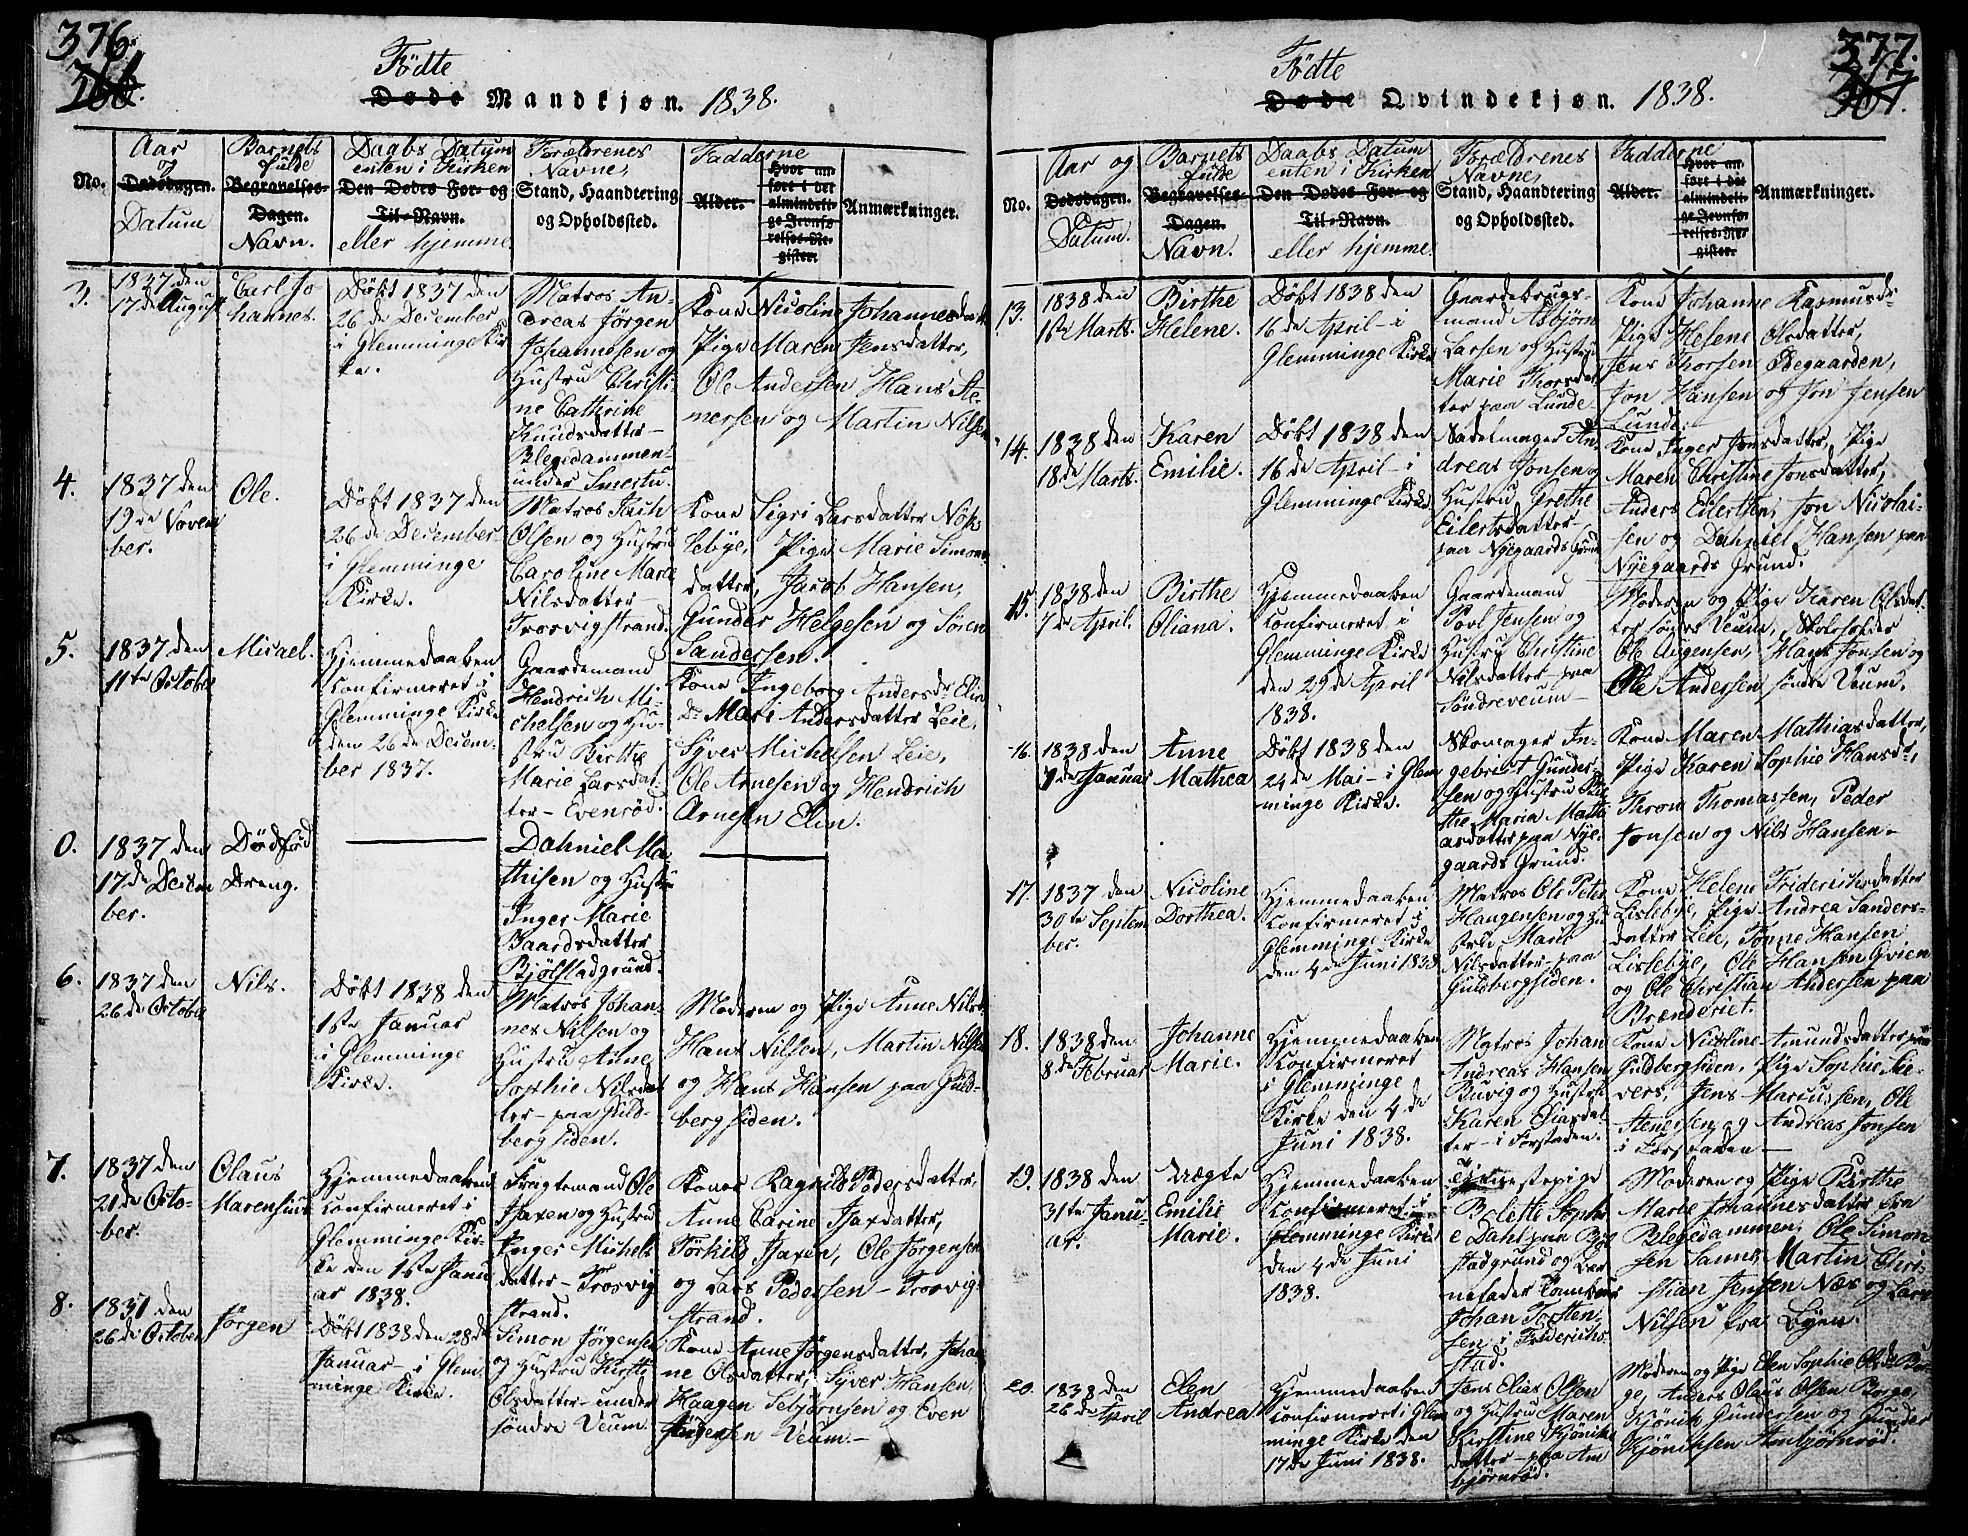 376.
366.
Födte
Døde Mandkjøn. 1838.
No.
Aar og Dødsdagen. Datum
Barnets fulde Begravelses-Dagen. Navn.
Daabs Datum enten i Kirken Den Dødes For- og Til-Navn. eller hjemme
Forældrenes Navne, Stand, Haandtering og Opholdssted.
Fadderne Alder.
Hvor anført i det almindelige Jevnførelses-Register.
Anmærkninger.
3.
1837 den
17de August
Carl Jo
hannes.
Döbt 1837 den
26de December
i Glemminge Kir
ke.
Matros An-
dreas Jörgen
Johannesen og
Hustru Christi-
ne Cathrine
Knudsdatter-
Blegedammen
under Smertu.
Kone Nicoline Johannesdatt
Pige Maren Jensdatter,
Ole Andersen Hans Ste-
nersen og Martin Nilsen
4.
1837 den
19de Novem
ber.
Ole.
Döbt 1837 den
26de December
i Glemminge
Kirke.
Matros
Olsen og Hustru
Caroline Marie
Nilsdatter-
Trosvigstrand.
Kone Sigri Larsdatter
Lebÿe, Pige Marie Simons
datter, Jacob Hansen,
Gunder Helgesen og Sören
Sandersen.
5.
1837 den
11te October
Micael.
Hjemmedaaben
Confirmeret i
Glemminge Kirke
den 26de Decem-
ber 1837.
Gaardemand
Hendrich Mi-
chelsen og Hu-
stru Birthe
Marie Larsdat
ter- Evenröd.
Kone Ingeborg Andersdr Elin
Dr. Mari Andersdatter Leie,
Syver Michelsen Leie,
Ole Arnesen og Hendrich
Arnesen Elin.
0.
1837 den
17de Decem
ber.
Dödföd
Dreng.
Dahniel Ma
thisen og Hustru
Inger Marie
Baardsdatter
Bjölstadgrund.
6.
1837 den
26de October
Nils.
Döbt 1838 den
1ste Januar
i Glemminge
Kirke.
Matros Johan-
nes Nilsen og
Hustru Anne
Sophie Nilsdat
ter- paa Guld-
bergsiden.
Moderen og Pige Anne Nilsd.
Hans Nilsen, Martin Nilsen
og Hans Hansen paa Guld-
bergsiden.
7.
1837 den
21de Octo-
ber.
Olaus
Marensius
Hjemmedaaben
Confirmeret i
Glemminge Kir-
ke den 1ste Janu
ar 1838.
Fragtemand Ole
Isaxen og Hustru
Inger Michels
datter- Trosvig
strand.
Koner Ragnild Pedersdatter,
Anne Carine Isaxdatter,
Törkild Isaxen, Ole Jörgensen
og Lars Pedersen- Trosvig-
strand.
8.
1837 den
26de October
Jörgen
Döbt 1838 den 28de
Januar- i Glem
minge Kirke.
Simon Jörgensen
og Hustru Kirsti
Olsdatter- under
söndre Veum.
Kone Anne Jörgensdatter, Joha
ne Olsdatter, Syver Hansen,
Haagen Sebjörnsen og Even
Jörgensen Veum.-
377.
367.
Födte
Døde Qvindekjøn. 1838.
No.
Aar og Dødsdagen. Datum.
Barnets fulde Begravelses-Dagen. Navn.
Daabs Datum enten i Kirken Den Dødes For- og Til-Navn. eller hjemme
Forældrenes Navne, Stand, Haandtering og Opholdssted.
Fadderne Alder.
Hvor anført i det almindelige Jevnførelses-Register.
Anmærkninger.
13.
1838 den
1ste Marts.
Birthe
Helene.
Döbt 1838 den
16de April- i
Glemminge Kirke
Gaardebrugs-
mand Asbjörn
Larsen og Hustru
Marie Thorsdat
ter paa Lunde
Kone Johanne Rasmusd-
Pige Helene Olsdatter,
Jens Thorsen Ödegaarden,
Jon Hansen og Jon Jensen
Lunde.
14.
1838 den
18de Marts.
Karen
Emilie.
Döbt 1838 den
16de April- i
Glemminge Kirke
Sadelmager An-
dreas Jonsen og
Hustru Grethe
Eilertsdatter-
paa Nÿegaards Grund
Kone Inger Jonsdatter, Pige
Maren Christine Jonsdatter,
Anders Eilertsen, Jon Nicolai-
sen og Dahniel Hansen paa
Nÿegaards Grund.
15.
1838 den
7de April.
Birthe
Oliana.
Hjemmedaaben
Confirmeret i
Glemminge Kirke
den 29de April
1838.
Gaardemand
Poel Jensen og
Hustru Christine
Nilsdatter- paa
Söndreveum-
Moderen og Pige Karen Olsdat-
ter söndre Veum, Skoleholder
Ole Aagensen, Hans Jonsen og
Ole Andersen söndre Veum.
16.
1838 den
7de Januar
Anne
Mathea
Döbt 1838 den
24de Mai- i Glem
minge Kirke.
Skomager In-
gebrigt Gunder-
sen og Hustru Bir
the Maria Mathi
asdatter paa Nÿe-
gaards Grund.
Kone Maren Mathiasdatter,
Pige Karen Sophie Hansdr,
Thron Thomassen, Peder
Jonsen og Nils Hansen-
17.
1837 den
30te Septem
ber.
Nicoline
Dorthea.
Hjemmedaaben
Confirmeret i
Glemminge Kirke
den 4de Juni 1838
Matros Ole Peter
Haugensen og Hu
stru Marie
Nilsdatter- paa
Guldbergsiden.
Kone Helene Friderichsdatter
Lislebÿe, Pige Andrea Sanders-
datter Leie, Tonne Hansen
Lislebÿe, Ole Hansen Qvien
og Ole Christian Andersen paa
Brænderiet.
18.
1838 den
8de Februar
Johanne
Marie.
Hjemmedaaben
Confirmeret
i Glemminge
Kirke den 4de
Juni 1838.
Matros Johan
Andreas Hansen
Buvig og Hustru
Karen Eliasdat
ter- i Forstaden.
Kone Nicoline Amundsdatter paa
Guldbergsiden, Pige Sophie Sie-
vers, Jens Marcussen, Ole
Stenersen og Andreas Jonsen
i Forstaden-
19.
1838 den
31te Janu-
ar.
Uægte
Emilie
Marie.
Hjemmedaaben
Confirmeret i
Glemminge Kirke
den 4de Juni
1838.
Tjenestepige
Bolette Soph
e Dahl paa Bjöl
stadgrund og Bar
nefader
Johan Torsten-
sen i Friderichs-
stad.
Moderen og Pige Birthe
Marie Johannesdatter fra
Blegedammen, Ole Simon
sen Sanne, Martin Chri-
stian Jensen Næs og Lars
Nilsen fra Byen.
20.
1838 den
26de April
Elen
Andrea
Hjemmedaaben
Confirmeret i Glem
minge Kirke den
17de Juni 1838.
Jens Elias Olsen
og Hustru Maren
Kirstine Kjöniks
datter- paa Am
björnröd.
Moderen og Pige Elen Sophie Olsdr Bor-
ge, Anders Olaus Olsen Borge,
Kjönik Gundersen og Gunder
Kjöniksen Ambjörnröd.